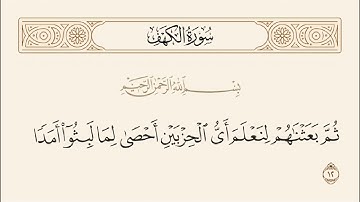 سُورَةُ الكَهْفِ
بِسْمِ اللَّهِ الرَّحْمَٰنِ الرَّحِيمِ
ثُمَّ بَعَثْنَٰهُمْ لِنَعْلَمَ أَىُّ ٱلْحِزْبَيْنِ أَحْصَىٰ لِمَا لَبِثُوٓا۟ أَمَدًا
١٢